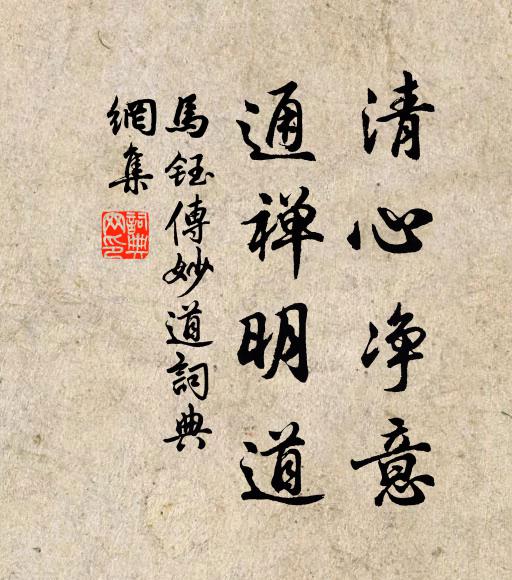 清心净意
通禅明道
馬鈺傳妙道詞典
網集
詞典
网印